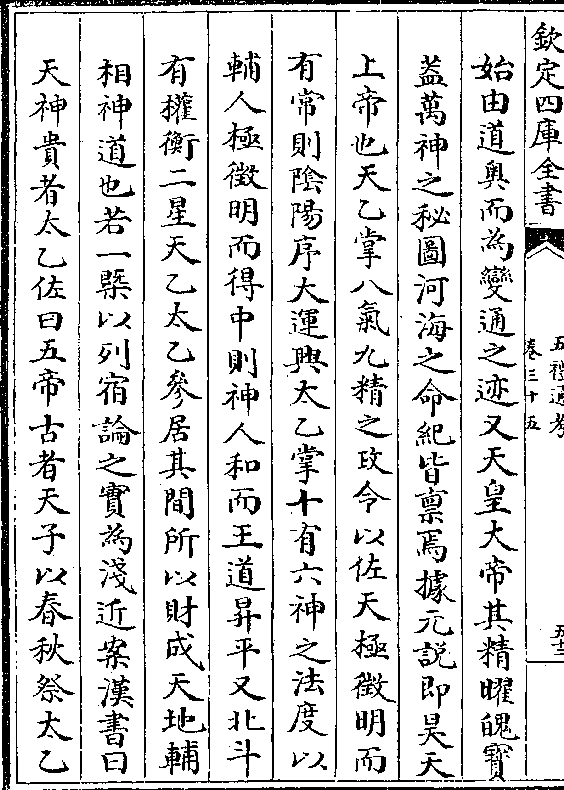 欽定四庫全書
五禮通考
卷三十五
五十三
始由道奧而為變通之迹又天皇大帝其精曜魄寶
葢萬神之秘圖河海之命紀皆禀焉據元説即昊天
上帝也天乙掌八氣九精之政令以佐天極徵明而
有常則陰陽序大運興太乙掌十有六神之法度以
輔人極徵明而得中則神人和而王道昇平又北斗
有權衡二星天乙太乙參居其間所以財成天地輔
相神道也若一槩以列宿論之實為淺近案漢書曰
天神貴者太乙佐曰五帝古者天子以春秋祭太乙